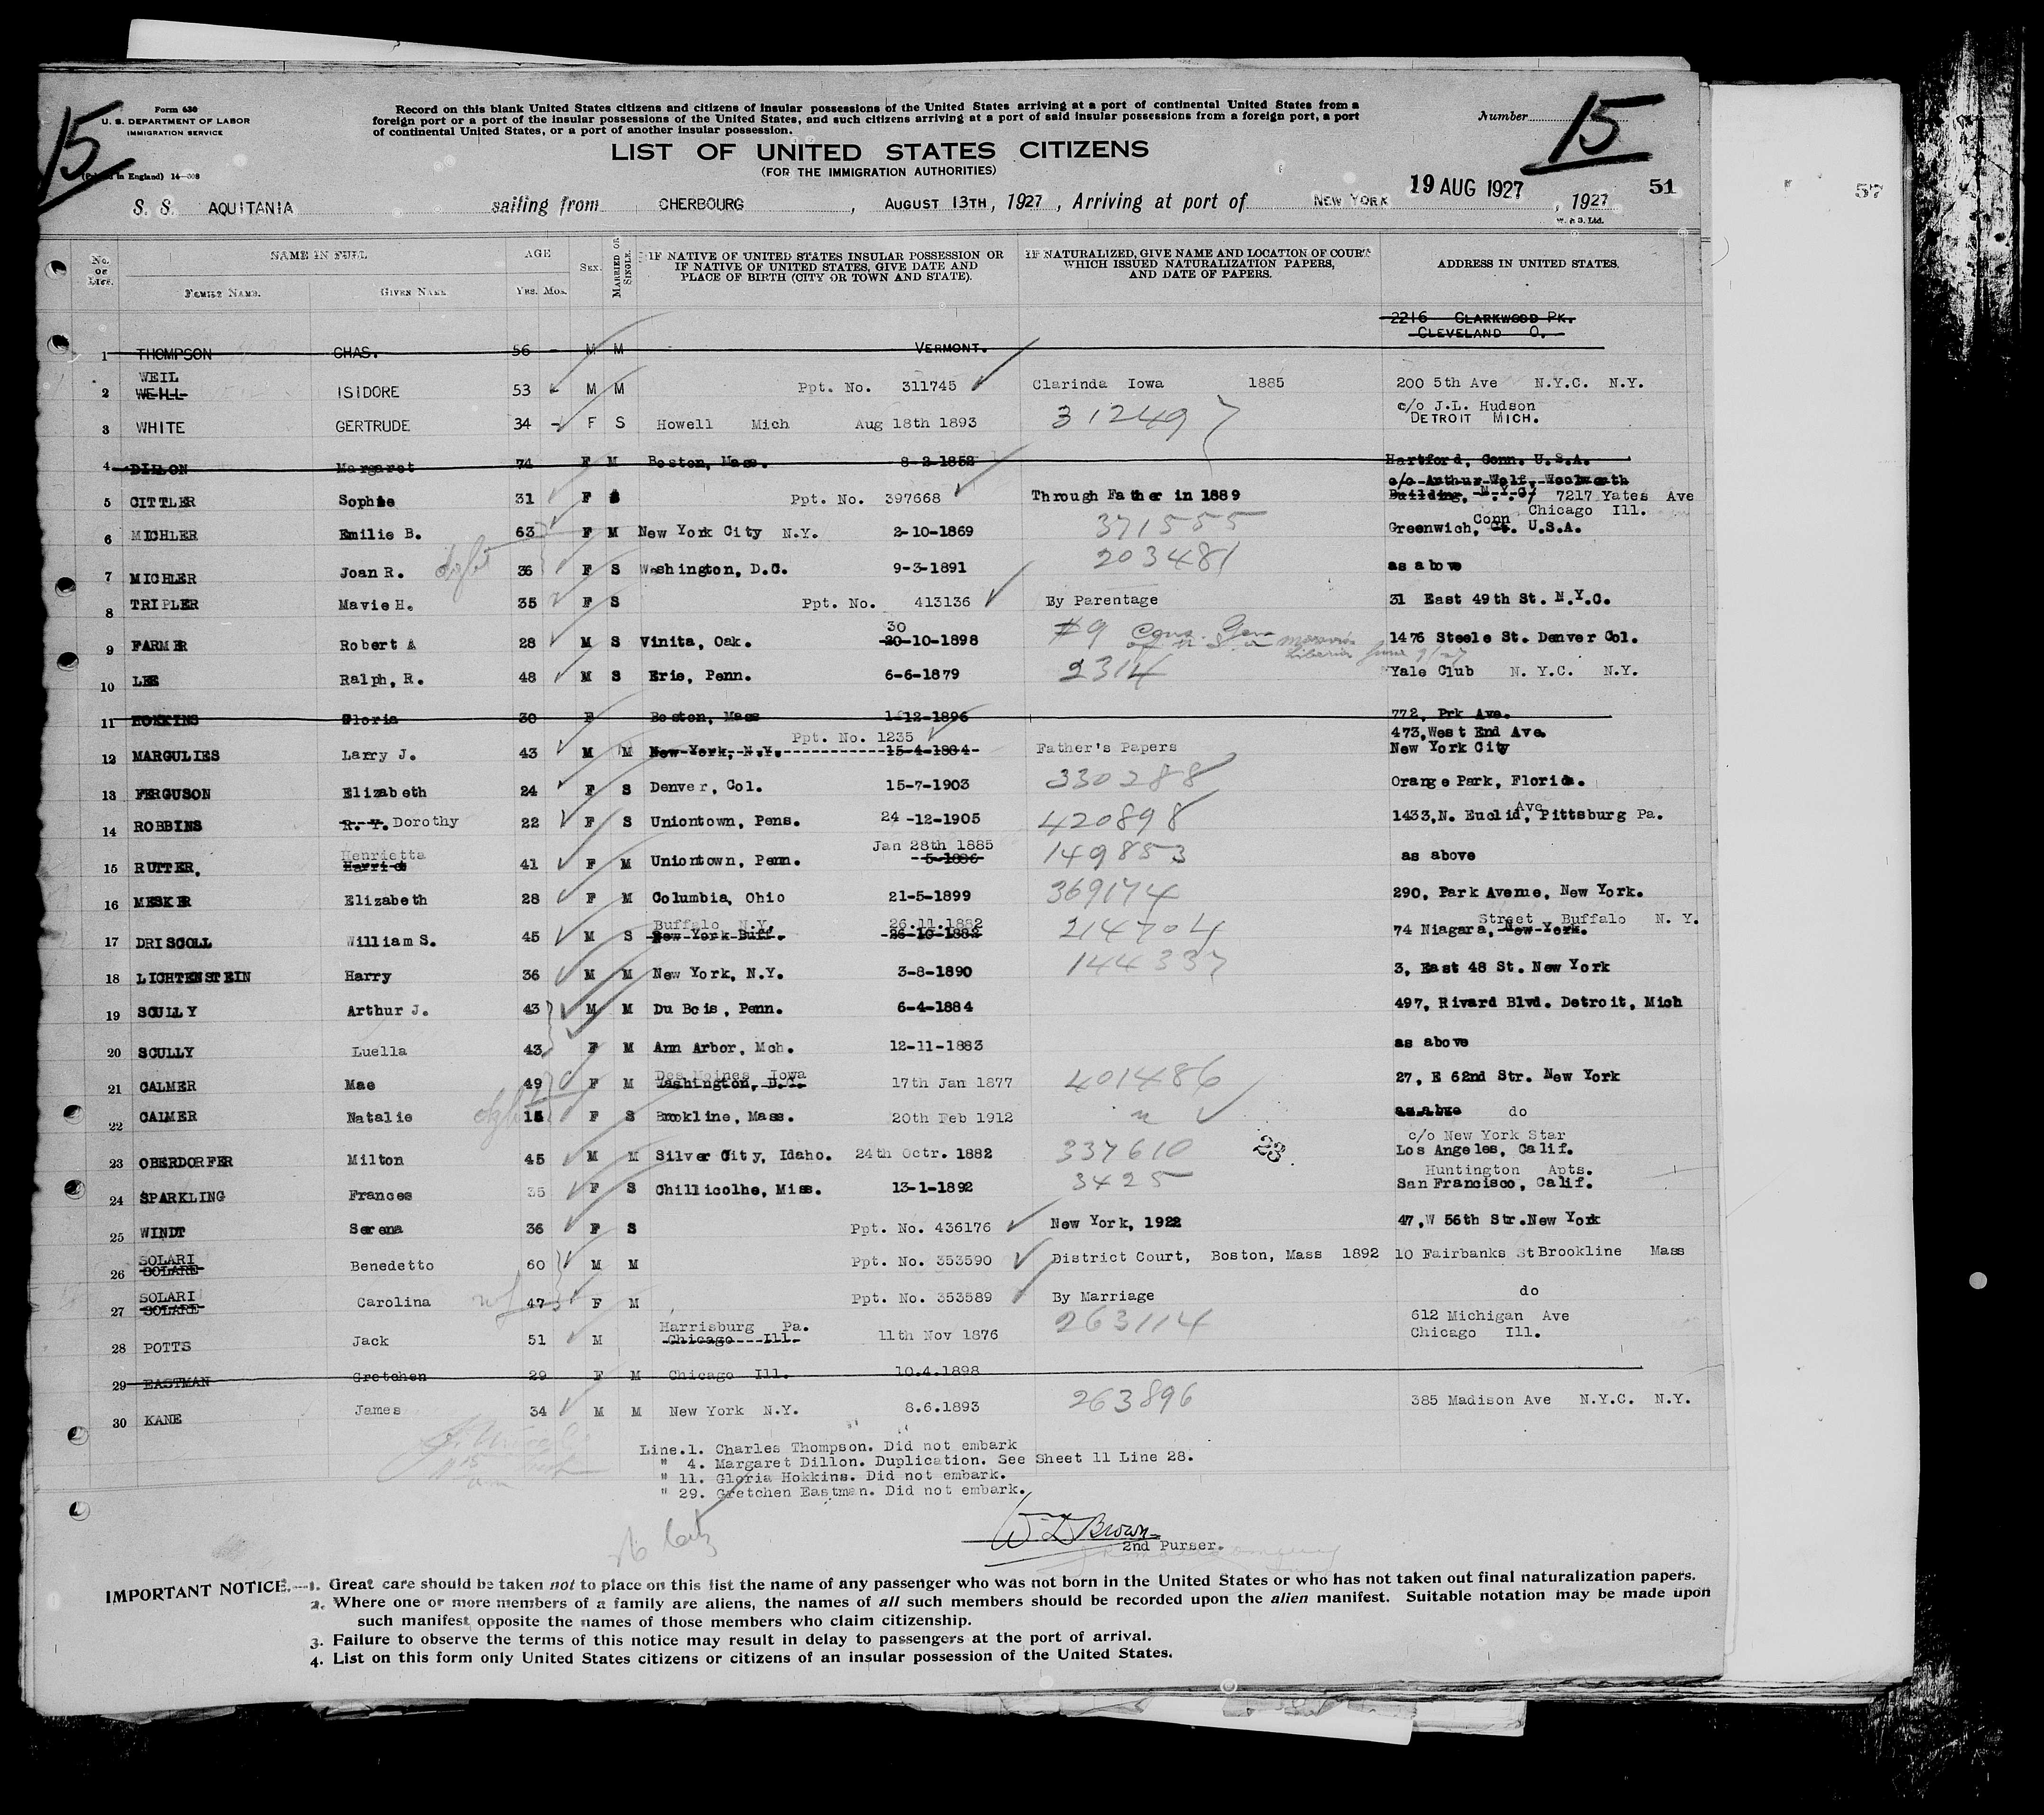 15
Form 630
U. S. DEPARTMENT OF LABOR
IMMIGRATION SERVICE
in England) 14—308
Record on this blank United States citizens and citizens of insular possessions of the United States arriving at a port of continental United States from a
foreign port or a port of the insular possessions of the United States, and such citizens arriving at a port of said insular possessions from a foreign port, a port
of continental United States, or a port of another insular possession.
Number 15
LIST OF UNITED STATES CITIZENS
(FOR THE IMMIGRATION AUTHORITIES)
19 AUG 1927 51
57
S. S. AQUITANIA sailing from CHERBOURG, AUGUST 13TH, 1927, Arriving at port of NEW YORK, 1927
W. & S. Ltd.
No. OF LIST. NAME IN FULL FAMILY NAME. GIVEN NAME AGE YRS. MOS. SEX. MARRIED OR SINGLE. IF NATIVE OF UNITED STATES INSULAR POSSESSION OR IF NATIVE OF UNITED STATES, GIVE DATE AND PLACE OF BIRTH (CITY OR TOWN AND STATE). IF NATURALIZED, GIVE NAME AND LOCATION OF COURT WHICH ISSUED NATURALIZATION PAPERS, AND DATE OF PAPERS. ADDRESS IN UNITED STATES.
2216 CLARKWOOD PK.
CLEVELAND O.
1 THOMPSON CHAS. 56 - M M VERMONT.
WEIL
2 WEILL ISIDORE 53 - M M Ppt. No. 311745 Clarinda Iowa 1885 200 5th Ave N.Y.C. N.Y.
c/o J.L. Hudson
3 WHITE GERTRUDE 34 - F S Howell Mich Aug 18th 1893 312497 DETROIT MICH.
4 DILLON Margaret 74 F M Boston, Mass. 8-2-1852 Hartford, Conn. U.S.A.
c/o Arthur Wolf, Woolworth
5 CITTLER Sophie 31 F S Ppt. No. 397668 Through Father in 1889 Building, N.Y.C/ 7217 Yates Ave
Chicago Ill.
6 MICHLER Emilie B. 63 F M New York City N.Y. 2-10-1869 371555 Greenwich, Conn Ct. U.S.A.
7 MICHLER Joan R. 36 F S Washington, D.C. 9-3-1891 203481 as above
8 TRIPLER Mavie H. 35 F S Ppt. No. 413136 By Parentage 31 East 49th St. N.Y.C.
30
9 FARMER Robert A 28 M S Vinita, Oak. 20-10-1898 #9 Cons. Gen 1476 Steele St. Denver Col.
10 LEE Ralph, R. 48 M S Erie, Penn. 6-6-1879 2314 Yale Club N.Y.C. N.Y.
11 HOKKINS Gloria 30 F Boston, Mass 1-12-1896 772, Prk Ave.
Ppt. No. 1235 473, West End Ave.
12 MARGULIES Larry J. 43 M M New York, N.Y. 15-4-1884 Father's Papers New York City
13 FERGUSON Elizabeth 24 F S Denver, Col. 15-7-1903 330288 Orange Park, Florida.
14 ROBBINS R. Y. Dorothy 22 F S Uniontown, Pens. 24-12-1905 420898 1433, N. Euclid, Ave Pittsburg Pa.
Henrietta Jan 28th 1885
15 RUTTER. Harriet 41 F M Uniontown, Penn. 5-1886 149853 as above
16 MESKER Elizabeth 28 F M Columbia, Ohio 21-5-1899 369174 290, Park Avenue, New York.
Buffalo N.Y. 26.11.1882 Street Buffalo N. Y.
17 DRISCOLL William S. 45 M S New York Buff. 26-10-1882 214704 74 Niagara, New York.
18 LICHTENSTEIN Harry 36 M M New York, N.Y. 3-8-1890 144337 3, East 48 St. New York
19 SCULLY Arthur J. 43 M M Du Bois, Penn. 6-4-1884 497, Rivard Blvd. Detroit, Mich
20 SCULLY Luella 43 F M Ann Arbor, Mch. 12-11-1883 as above
Des Moines Iowa
21 CALMER Mae 49 F M Washington, D.C. 17th Jan 1877 401486 27, E 62nd Str. New York
22 CALMER Natalie 15 F S Brookline, Mass. 20th Feb 1912 " as abve do
c/o New York Star
23 OBERDORFER Milton 45 M M Silver City, Idaho. 24th Octr. 1882 337610 23 Los Angeles, Calif.
Huntington Apts.
24 SPARKLING Frances 35 F S Chillicolhe, Miss. 13-1-1892 3425 San Francisco, Calif.
25 WINDT Serena 36 F S Ppt. No. 436176 New York, 1922 47, W 56th Str. New York
SOLARI
26 SOLARE Benedetto 60 M M Ppt. No. 353590 District Court, Boston, Mass 1892 10 Fairbanks St Brookline Mass
SOLARI
27 SOLARE Carolina 47 F M Ppt. No. 353589 By Marriage do
Harrisburg Pa. 612 Michigan Ave
28 POTTS Jack 51 M Chicago Ill. 11th Nov 1876 263114 Chicago Ill.
29 EASTMAN Gretchen 29 F M Chicago Ill. 10.4.1898
30 KANE James 34 M M New York N.Y. 8.6.1893 263896 385 Madison Ave N.Y.C. N.Y.
Line.1. Charles Thompson. Did not embark
" 4. Margaret Dillon. Duplication. See Sheet 11 Line 28.
" 11. Gloria Hokkins. Did not embark.
" 29. Gretchen Eastman. Did not embark.
W L Brown
2nd Purser.
IMPORTANT NOTICE.—1. Great care should be taken not to place on this list the name of any passenger who was not born in the United States or who has not taken out final naturalization papers.
2. Where one or more members of a family are aliens, the names of all such members should be recorded upon the alien manifest. Suitable notation may be made upon
such manifest opposite the names of those members who claim citizenship.
3. Failure to observe the terms of this notice may result in delay to passengers at the port of arrival.
4. List on this form only United States citizens or citizens of an insular possession of the United States.